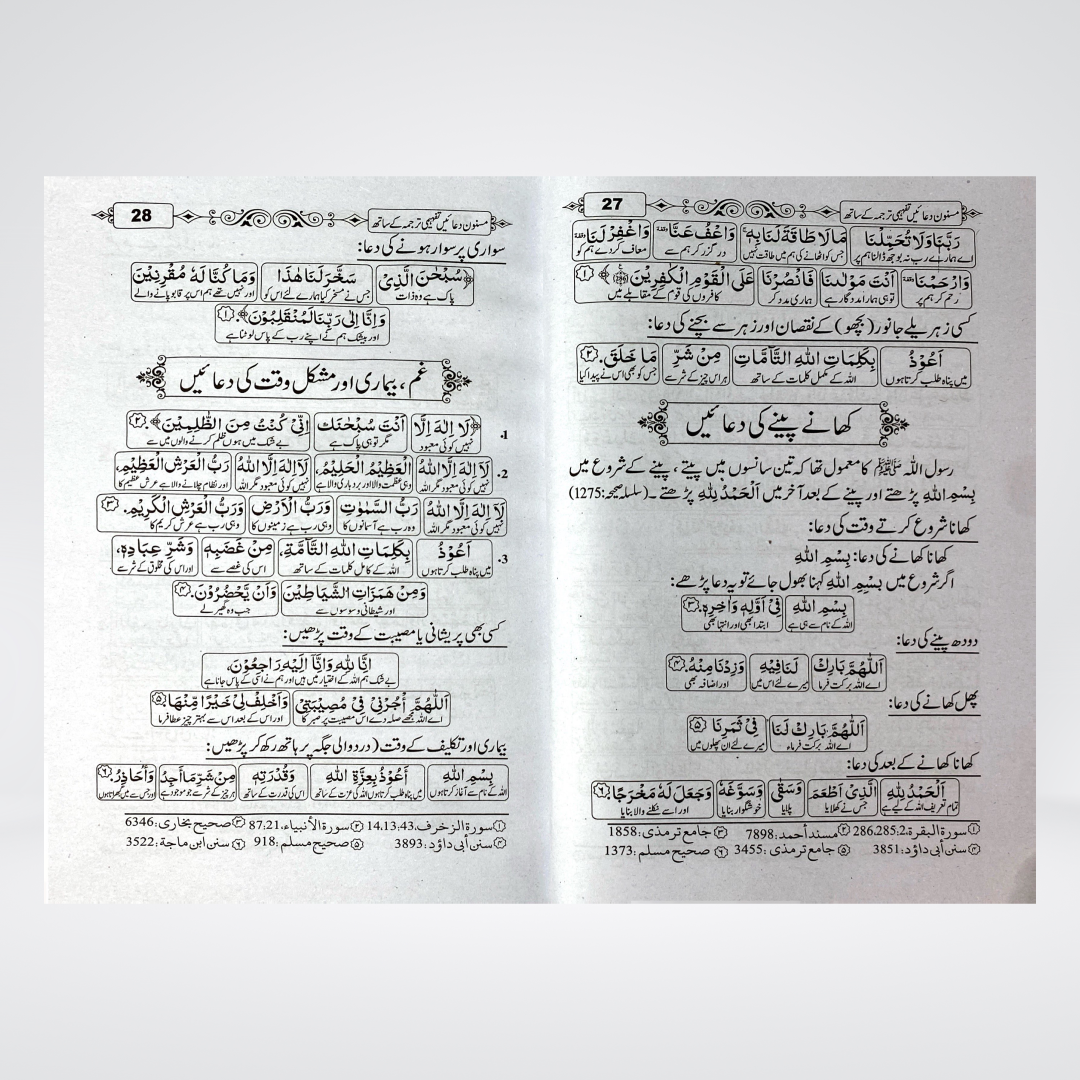 مسنون دعائیں تفہیمی ترجمہ کے ساتھ 27
رَبَّنَا وَلَا تُحَمِّلْنَا مَا لَا طَاقَةَ لَنَا بِهٖ وَاعْفُ عَنَّا وَاغْفِرْ لَنَا
اے ہمارے رب نہ بوجھ ڈالنا ہم پر جس کو اٹھانے کی ہم میں طاقت نہیں در گزر کر ہم سے معاف کر دے ہم کو
وَارْحَمْنَا اَنْتَ مَوْلٰىنَا فَانْصُرْنَا عَلَى الْقَوْمِ الْكٰفِرِيْنَ ﴾ ①
رحم کر ہم پر تو ہی ہمارا مددگار ہے ہماری مدد کر کافروں کی قوم کے مقابلے میں
کسی زہریلے جانور (بچھو) کے نقصان اور زہر سے بچنے کی دعا:
اَعُوْذُ بِكَلِمَاتِ اللهِ التَّآمَّاتِ مِنْ شَرِّ مَا خَلَقَ. ②
میں پناہ طلب کرتا ہوں اللہ کے مکمل کلمات کے ساتھ ہر اس چیز کے شر سے جس کو بھی اس نے پیدا کیا
کھانے پینے کی دعائیں
رسول اللہ ﷺ کا معمول تھا کہ تین سانسوں میں پیتے، پینے کے شروع میں
بِسْمِ اللهِ پڑھتے اور پینے کے بعد آخر میں اَلْحَمْدُ لِلّٰهِ پڑھتے۔ (سلسلہ صحیحہ:1275)
کھانا شروع کرتے وقت کی دعا:
کھانا کھانے کی دعا: بِسْمِ اللهِ
اگر شروع میں بِسْمِ اللهِ کہنا بھول جائے تو یہ دعا پڑھے:
بِسْمِ اللهِ فِىْ اَوَّلِهٖ وَاٰخِرِهٖ. ③
اللہ کے نام سے ہی ہے ابتدا بھی اور انتہا بھی
دودھ پینے کی دعا:
اَللّٰهُمَّ بَارِكْ لَنَا فِيْهِ وَزِدْنَا مِنْهُ. ④
اے اللہ برکت فرما میرے لئے اس میں اور اضافہ بھی
پھل کھانے کی دعا:
اَللّٰهُمَّ بَارِكْ لَنَا فِىْ ثَمَرِنَا ⑤
اے اللہ برکت فرماء میرے لئے ان پھلوں میں
کھانا کھانے کے بعد کی دعا:
اَلْحَمْدُ لِلّٰهِ الَّذِىْ اَطْعَمَ وَسَقٰى وَسَوَّغَهٗ وَجَعَلَ لَهٗ مَخْرَجًا. ⑥
تمام تعریف اللہ کے لیے ہے جس نے کھلایا پلایا خوشگوار بنایا اور اسے نکلنے والا بنایا
① سورة البقرة، 286,285:2 ② مسند أحمد: 7898 ③ جامع ترمذی: 1858
④ سنن أبی داؤد: 3851 ⑤ جامع ترمذی: 3455 ⑥ صحیح مسلم: 1373
مسنون دعائیں تفہیمی ترجمہ کے ساتھ 28
سواری پر سوار ہونے کی دعا:
﴿سُبْحٰنَ الَّذِىْ سَخَّرَ لَنَا هٰذَا وَمَا كُنَّا لَهٗ مُقْرِنِيْنَ
پاک ہے وہ ذات جس نے مسخر کیا ہمارے لئے اس کو اور نہیں تھے ہم اس پر قابو پانے والے
وَاِنَّا اِلٰى رَبِّنَا لَمُنْقَلِبُوْنَ﴾. ①
اور بیشک ہم کے اپنے رب کے پاس لوٹنا ہے
غم، بیماری اور مشکل وقت کی دعائیں
1. ﴿لَا اِلٰهَ اِلَّا اَنْتَ سُبْحٰنَكَ اِنِّىْ كُنْتُ مِنَ الظّٰلِمِيْنَ﴾. ②
نہیں کوئی معبود مگر تو ہی پاک ہے بے شک میں ہوں ظلم کرنے والوں میں سے
2. لَآ اِلٰهَ اِلَّا اللهُ الْعَظِيْمُ الْحَلِيْمُ، لَآ اِلٰهَ اِلَّا اللهُ رَبُّ الْعَرْشِ الْعَظِيْمِ،
نہیں کوئی معبود مگر اللہ وہی عظمت والا اور بردباری والا ہے نہیں کوئی معبود مگر اللہ اور نظام چلانے والا ہے عرش عظیم کا
لَآ اِلٰهَ اِلَّا اللهُ رَبُّ السَّمٰوٰتِ وَرَبُّ الْاَرْضِ وَرَبُّ الْعَرْشِ الْكَرِيْمِ. ③
نہیں کوئی معبود مگر اللہ وہ رب ہے آسمانوں کا وہی رب ہے زمینوں کا وہی رب ہے عرش کریم کا
3. اَعُوْذُ بِكَلِمَاتِ اللهِ التَّآمَّةِ، مِنْ غَضَبِهٖ وَشَرِّ عِبَادِهٖ،
میں پناہ طلب کرتا ہوں اللہ کے کامل کلمات کے ساتھ اس کی غصے سے اور اس کی مخلوق کے شر سے
وَمِنْ هَمَزَاتِ الشَّيَاطِيْنَ وَاَنْ يَّحْضُرُوْنَ. ④
اور شیطانی وسوسوں سے جب وہ گھیر لے
کسی بھی پریشانی یا مصیبت کے وقت پڑھیں:
اِنَّا لِلّٰهِ وَاِنَّا اِلَيْهِ رَاجِعُوْنَ،
بے شک ہم اللہ کے اختیار میں ہیں اور ہم نے اسی کے پاس جانا ہے
اَللّٰهُمَّ أْجُرْنِىْ فِىْ مُصِيْبَتِىْ وَاَخْلِفْ لِىْ خَيْرًا مِّنْهَا ⑤
اے اللہ مجھے صلہ دے اس مصیبت پر صبر کا اور اس کے بعد اس سے بہتر چیز عطا فرما
بیماری اور تکلیف کے وقت (درد والی جگہ پر ہاتھ رکھ کر پڑھیں:
بِسْمِ اللهِ اَعُوْذُ بِعِزَّةِ اللهِ وَقُدْرَتِهٖ مِنْ شَرِّ مَا اَجِدُ وَاُحَاذِرُ. ⑥
اللہ کے نام سے آغاز کرتا ہوں میں پناہ طلب کرتا ہوں اللہ کی عزت کے ساتھ اس کی قدرت کے ساتھ ہر چیز کے شر سے جو موجود ہے اور جس سے میں گھبراتا ہوں
① سورة الزخرف، 14,13:43 ② سورة الأنبیاء، 87:21 ③ صحیح بخاری: 6346
④ سنن أبی داؤد: 3893 ⑤ صحیح مسلم: 918 ⑥ سنن ابن ماجة: 3522